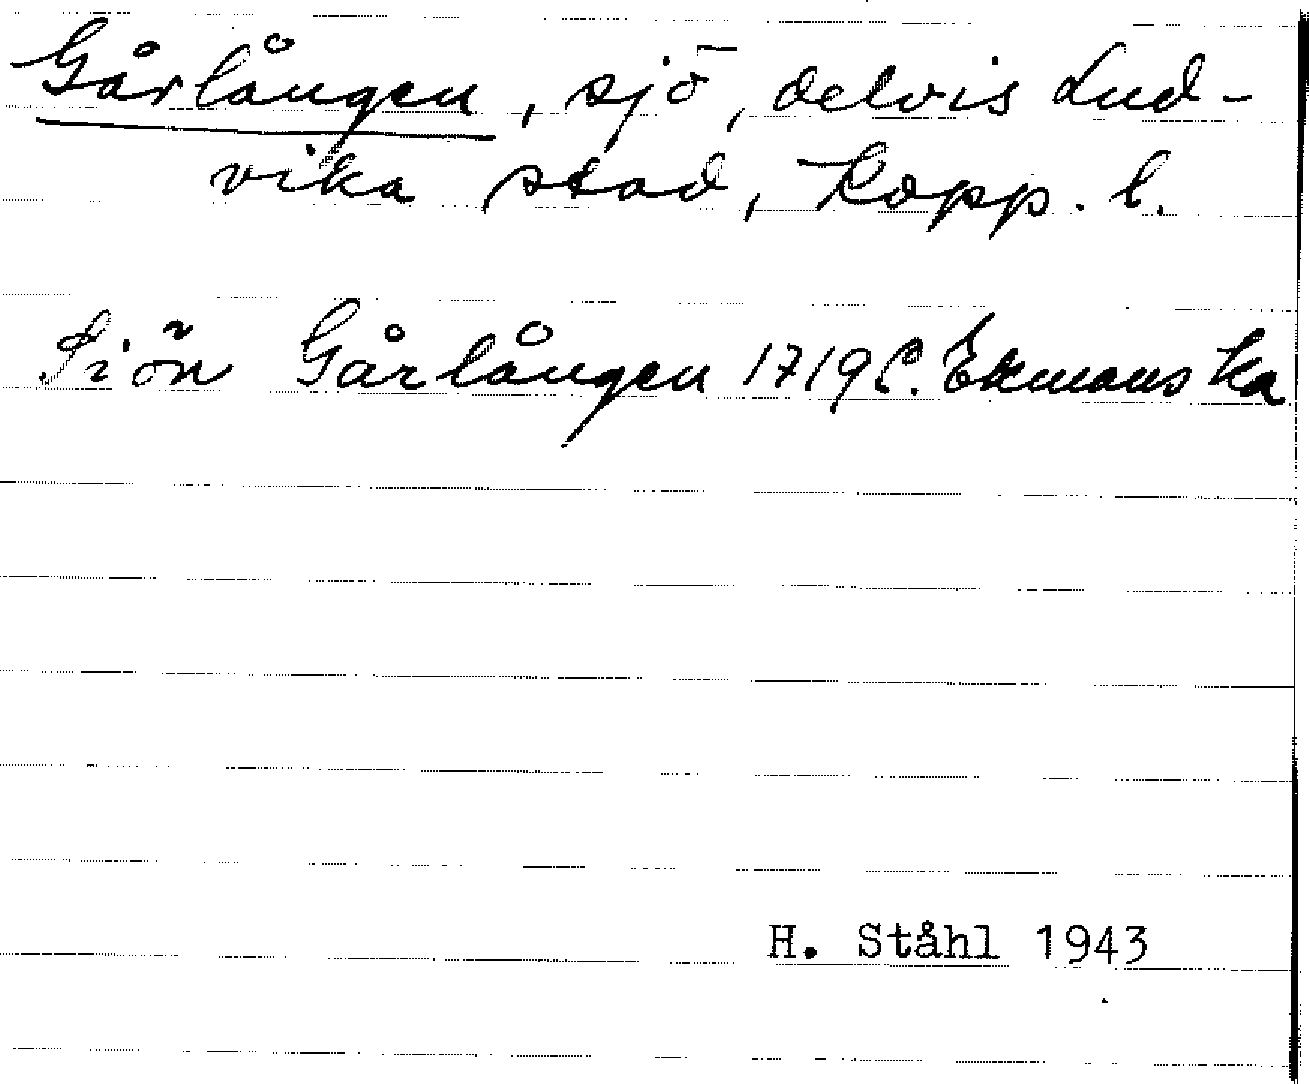 Gårlången, sjö, delvis Lud-
vika stad, Kopp. l.
Siön Gårlången 1719 C. Ekmans ka
H. Ståhl 1943